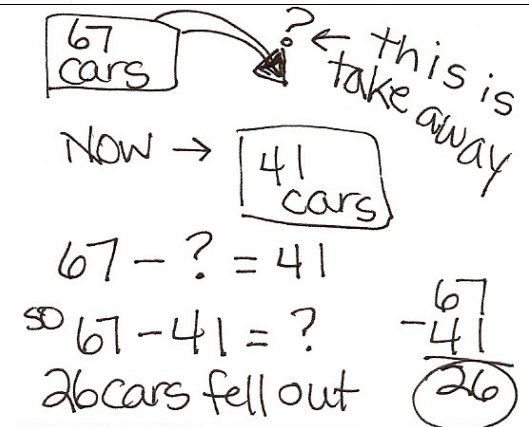 67
cars
?
← this is
take away
Now →
41
cars
67 - ? = 41
so 67 - 41 = ?
26 cars fell out
67
- 41
26